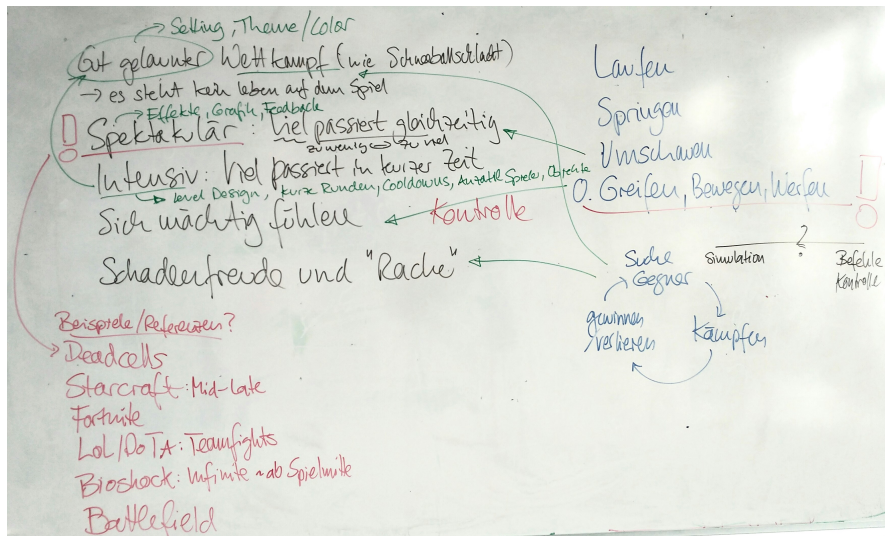 Setting, Theme/Color
Gut gelaunter Wettkampf (wie Schneeballschlacht)
→ es steht kein leben auf dem Spiel
Effekte, Grafik, Feedback
! Spektakulär : Viel passiert gleichzeitig
zu wenig ↔ zu viel
Intensiv: Viel passiert in kurzer Zeit
Level Design, kurze Runden, Cooldowns, Anzahl Spieler, Objekte
Sich mächtig fühlen
Kontrolle
Schadenfreude und "Rache"
Beispiele/Referenzen?
Deadcells
Starcraft: Mid-Late
Fortnite
LoL/DoTA: Teamfights
Bioshock: Infinite ~ ab Spielmitte
Battlefield
Laufen
Springen
Umschauen
O. Greifen, Bewegen, Werfen !
?
Simulation
Befehle
Kontrolle
Suche
Gegner
Kämpfen
gewinnen
/verlieren